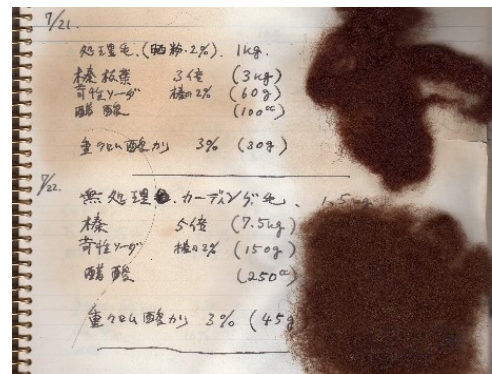 7/21.
処理毛.(晒粉.2%). 1kg.
榛枝葉 3倍 (3kg)
苛性ソーダ 榛の2% (60g)
醋酸 (100cc)
重クロム酸カリ 3% (30g)
7/22.
無処理.カーディング毛. 1.5kg
榛 5倍 (7.5kg)
苛性ソーダ 榛の2% (150g)
醋酸 (250cc)
重クロム酸カリ 3% (45g